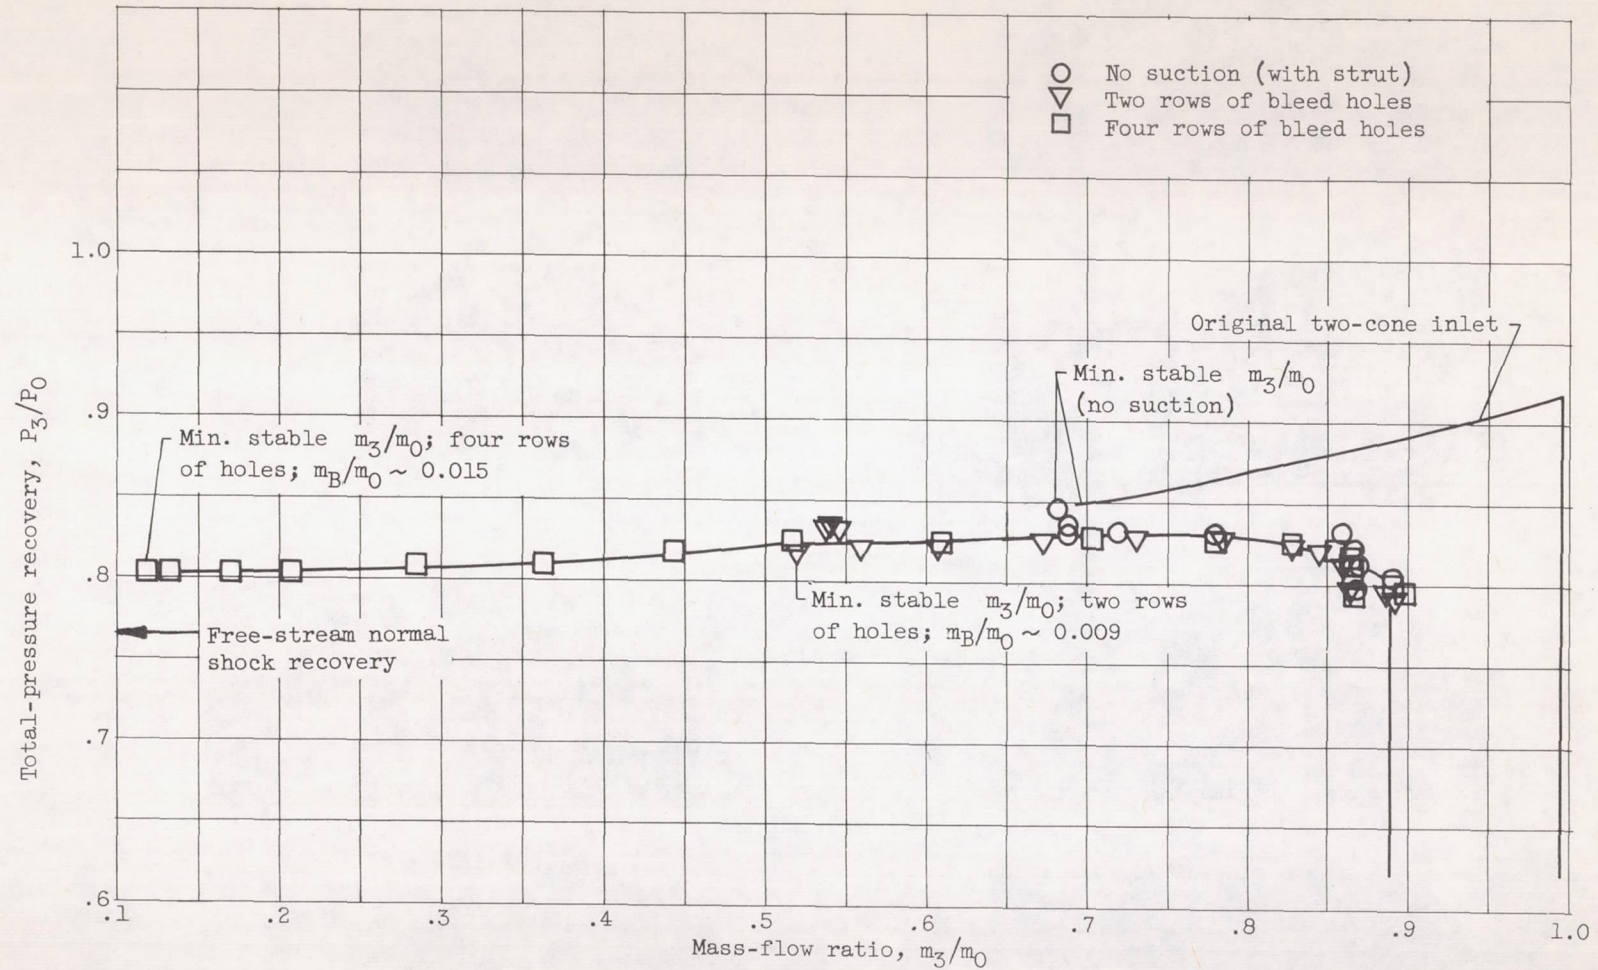 No suction (with strut)
Two rows of bleed holes
Four rows of bleed holes
1.0
Original two-cone inlet
Min. stable m3/m0
(no suction)
.9
Min. stable m3/m0; four rows
of holes; mB/m0 ~ 0.015
.8
Min. stable m3/m0; two rows
of holes; mB/m0 ~ 0.009
Free-stream normal
shock recovery
.7
.6
Total-pressure recovery, P3/P0
.1 .2 .3 .4 .5 .6 .7 .8 .9 1.0
Mass-flow ratio, m3/m0